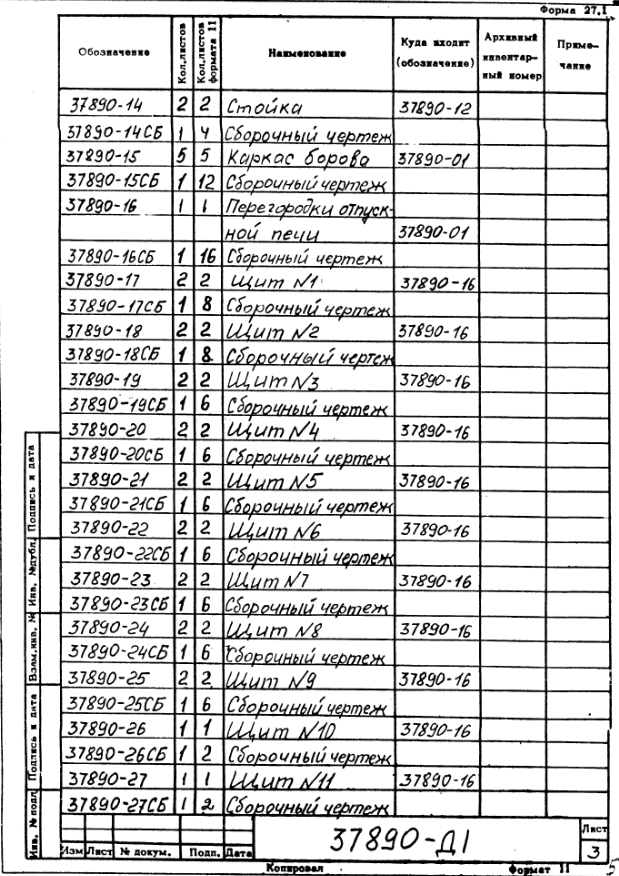 Форма 27.1
Обозначение Кол.листов Кол.листов формата 11 Наименование Куда входит (обозначение) Архивный инвентарный номер Примечание
37890-14 2 2 Стойка 37890-12
37890-14СБ 1 4 Сборочный чертеж
37890-15 5 5 Каркас борова 37890-01
37890-15СБ 1 12 Сборочный чертеж
37890-16 1 1 Перегородки отпуск-
ной печи 37890-01
37890-16СБ 1 16 Сборочный чертеж
37890-17 2 2 Щит №1 37890-16
37890-17СБ 1 8 Сборочный чертеж
37890-18 2 2 Щит №2 37890-16
37890-18СБ 1 8 Сборочный чертеж
37890-19 2 2 Щит №3 37890-16
37890-19СБ 1 6 Сборочный чертеж
37890-20 2 2 Щит №4 37890-16
37890-20СБ 1 6 Сборочный чертеж
37890-21 2 2 Щит №5 37890-16
37890-21СБ 1 6 Сборочный чертеж
37890-22 2 2 Щит №6 37890-16
37890-22СБ 1 6 Сборочный чертеж
37890-23 2 2 Щит №7 37890-16
37890-23СБ 1 6 Сборочный чертеж
37890-24 2 2 Щит №8 37890-16
37890-24СБ 1 6 Сборочный чертеж
37890-25 2 2 Щит №9 37890-16
37890-25СБ 1 6 Сборочный чертеж
37890-26 1 1 Щит №10 37890-16
37890-26СБ 1 2 Сборочный чертеж
37890-27 1 1 Щит №11 37890-16
37890-27СБ 1 2 Сборочный чертеж
Инв. № подл. Подпись и дата Взам.инв. № Инв. №дубл. Подпись и дата
37890-Д1
Лист
3
Изм Лист № докум. Подп. Дата
Копировал Формат 11
5